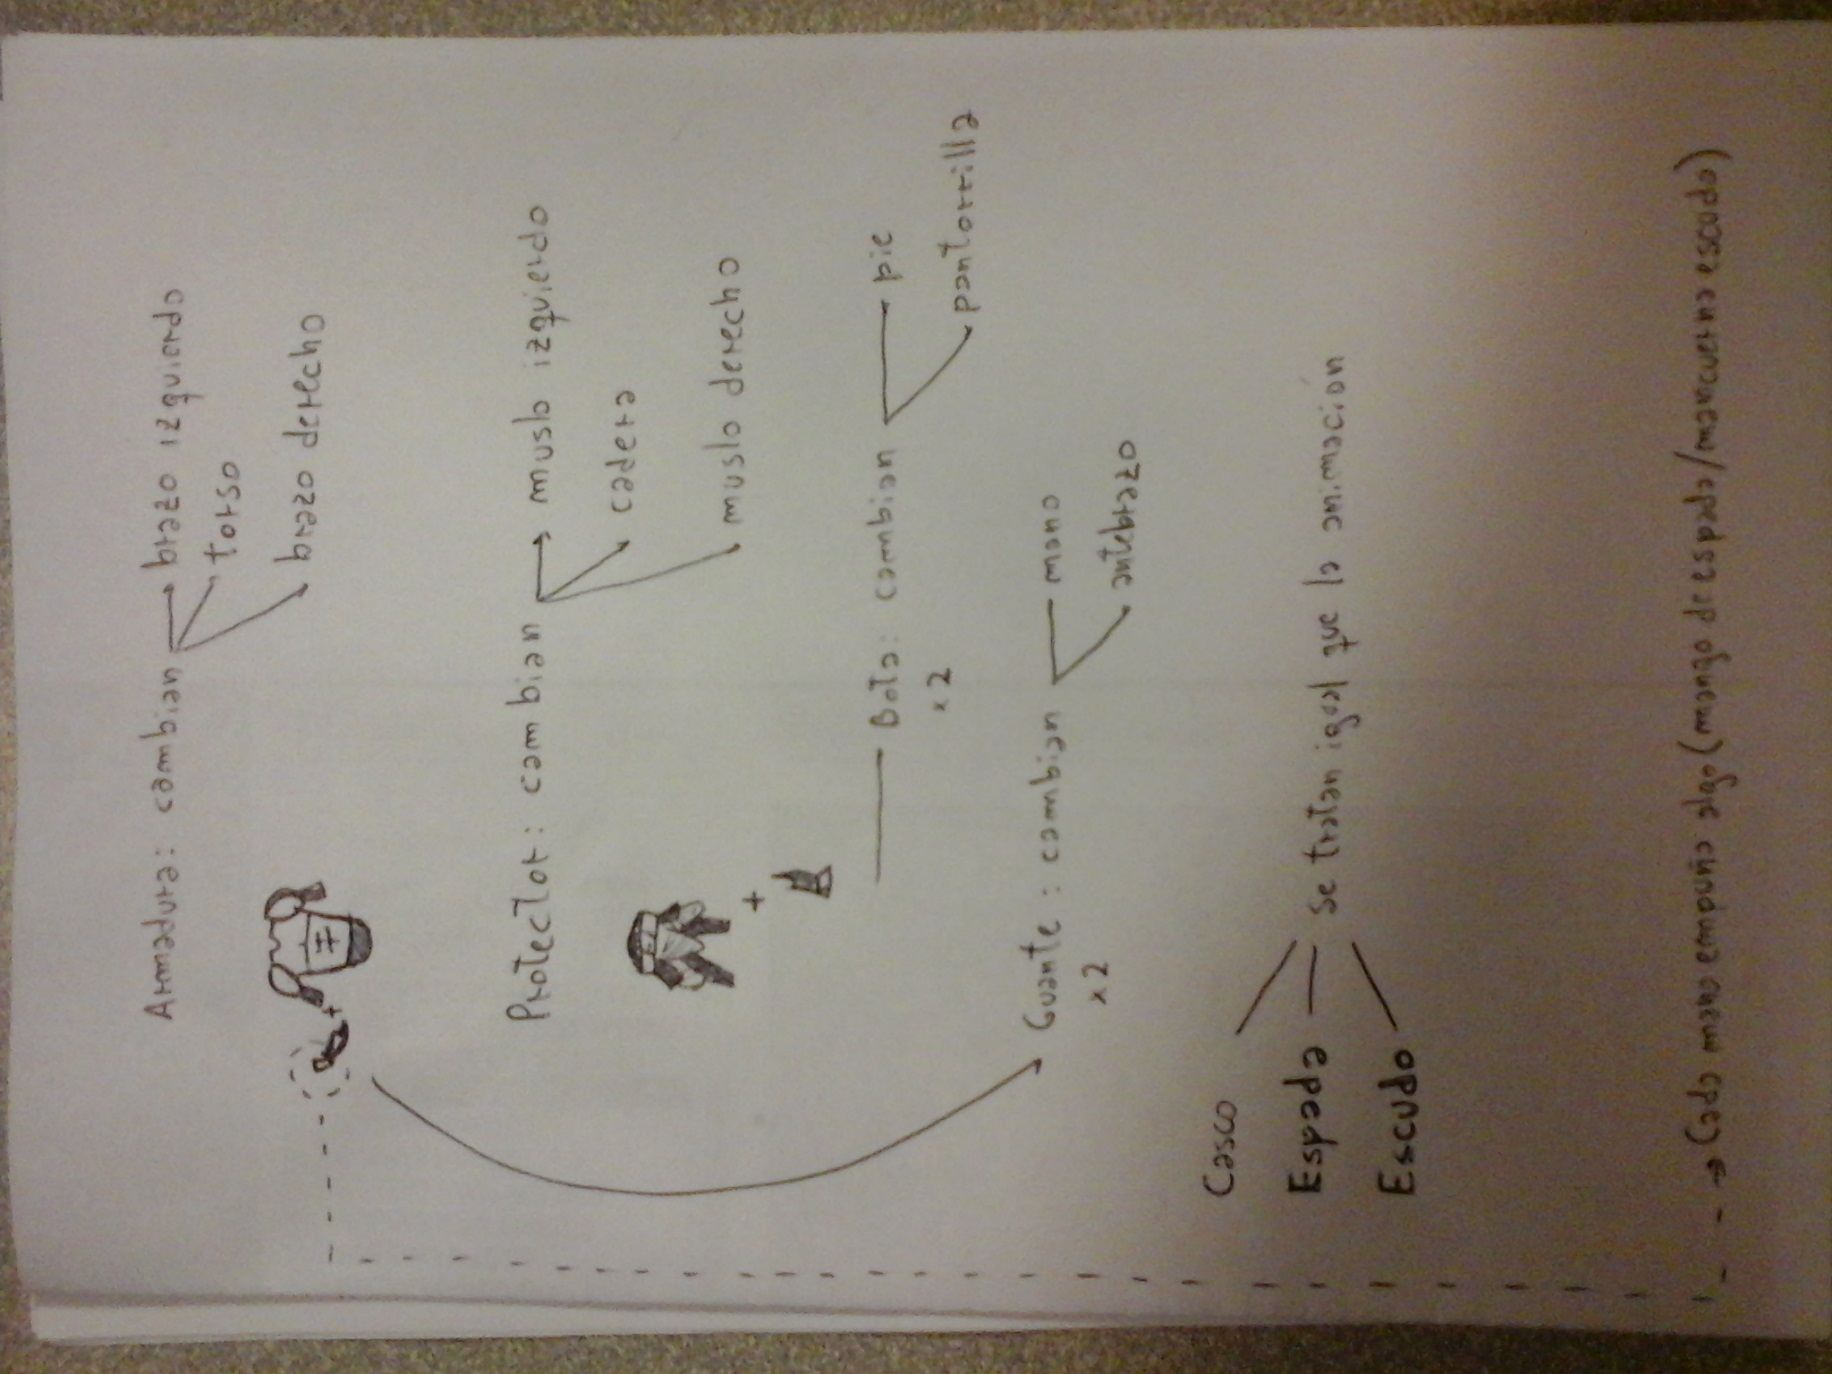 Armadura: cambian brazo izquierdo
torso
brazo derecho
+
Protector: cambian muslo izquierdo
cadera
muslo derecho
+
Bota: cambian pie
x2 pantorrilla
Guante: cambian mano
x2 antebrazo
Casco
Espada se tratan igual que la animación
Escudo
Cada mano empuña algo (mango de espada/manecuerna escudo)